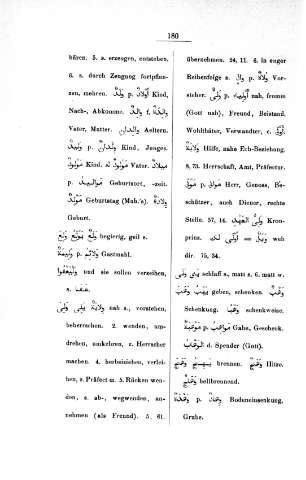 180
bären. 5. s. erzogen, entstehen.
6. s. durch Zeugung fortpflan-
zen, mehren. وَلَدٌ p. أَوْلَادٌ Kind,
Nach-, Abkomme. وَالِدٌ f. وَالِدَةٌ
Vater, Mutter. وَالِدَانِ Aeltern.
وَلِيدٌ p. وِلْدَانٌ Kind, Junges.
مَوْلُودٌ Kind. مَوْلُودٌ لَهُ Vater ميلاد
p. مَوَالِيدُ Geburtsort, -zeit.
مَوْلِدٌ Geburtstag (Muh.'s).
Geburt.
begierig, geil s.
وَلِيمَةٌ p. وَلَائِمُ Gastmahl.
und sie sollen verzeihen,
s.
nah s., vorstehen,
beherrschen. 2. wenden, um-
drehen, umkehren, c. Herrscher
machen. 4. herbeiziehen, verlei-
hen. s. Präfect m. 5. Rücken wen-
den, s. ab-, wegwenden, an-
nehmen (als Freund). 5, 61.
übernehmen. 24, 11. 6. in enger
Reihenfolge s. وَالٍ p. وُلَاةٌ Vor-
steher. وَلِيٌّ p. أَوْلِيَاءُ nah, fromm
(Gott nah), Freund, Beistand,
Wohlthäter, Verwandter, c.
وِلَايَةٌ Hilfe, nahe Erb-Beziehung.
8, 73. Herrschaft, Amt, Präfectur.
مَوْلًى p. مَوَالٍ Herr, Genoss, Be-
schützer, auch Diener, rechte
Stelle. 57, 14. وَلِيُّ الْعَهْدِ Kron-
prinz. أَوْلَى لَكَ = وَيْلٌ weh
dir. 75, 34.
schlaff s., matt s. 6. matt w.
وَهَبَ يَهَبُ geben, schenken.
Schenkung. schenkweise.
مَوْهِبَةٌ p. مَوَاهِبُ Gabe, Geschenk.
الْوَهَّابُ d. Spender (Gott).
brennen. Hitze.
hellbrennend.
وَهْدَةٌ p. وِهَادٌ Bodeneinsenkung,
Grube.